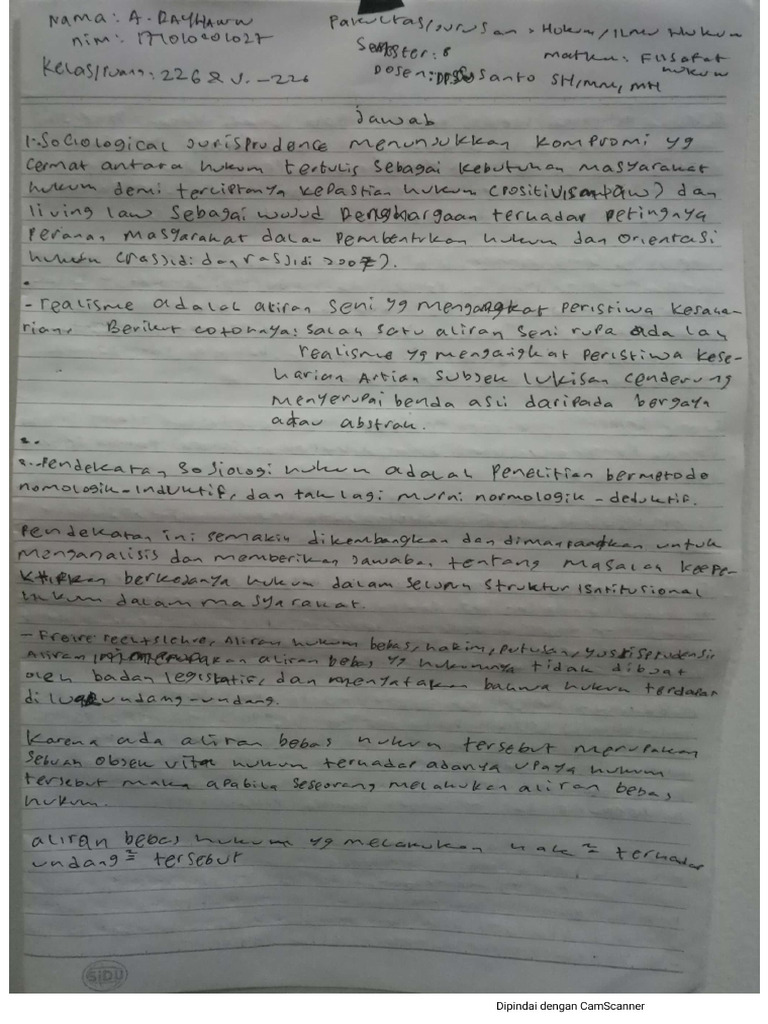 Nama: A. RAYHAWN
nim: 171010201027
Kelas/ruang: 226 & V. -226
Fakultas/jurusan: Hukum/Ilmu Hukum
Semester: 8
matku: Filsafat hukum
Dosen: Susanto SH,MM, MH
Jawab
1. Sociological Jurisprudence menunjukkan kompromi yg
cermat antara hukum tertulis sebagai kebutuhan masyarakat
hukum demi terciptanya kepastian hukum (positivism law) dan
living law sebagai wujud penghargaan terhadap petingnya
peranan masyarakat dalam pembentukan hukum dan orientasi
hukum (rasjidi dan rasjidi 2007).
- realisme adalah aliran seni yg mengangkat peristiwa keseha-
rian. Berikut cotohnya: salah satu aliran seni rupa adalah
realisme yg mengangkat peristiwa kese-
harian Artian subjek lukisan cenderung
menyerupai benda asli daripada bergaya
atau abstrak.
2.
2. -Pendekatan sosiologi hukum adalah penelitian bermetode
nomologik-induktif, dan tak lagi murni normologik-deduktif.
Pendekatan ini semakin dikembangkan dan dimanfaatkan untuk
menganalisis dan memberikan jawaban tentang masalah keefe-
ktifkan berkerjanya hukum dalam seluruh struktur isntitusional
hukum dalam masyarakat.
- Freire rechtslehre, Aliran hukum bebas, hakim, putusan, yuskisprudensi
Aliran ini merupakan aliran bebas yg hukumnya tidak dibuat
oleh badan legislatif, dan menyatakan bahwa hukum terdapat
di luar undang-undang.
Karena ada aliran bebas hukum tersebut merupakan
sebuah objek vital hukum terhadap adanya upaya hukum
tersebut maka apabila seseorang melakukan aliran bebas
hukum.
aliran bebas hukum yg melakukan hak² terhadap
undang² tersebut
SIDU
Dipindai dengan CamScanner